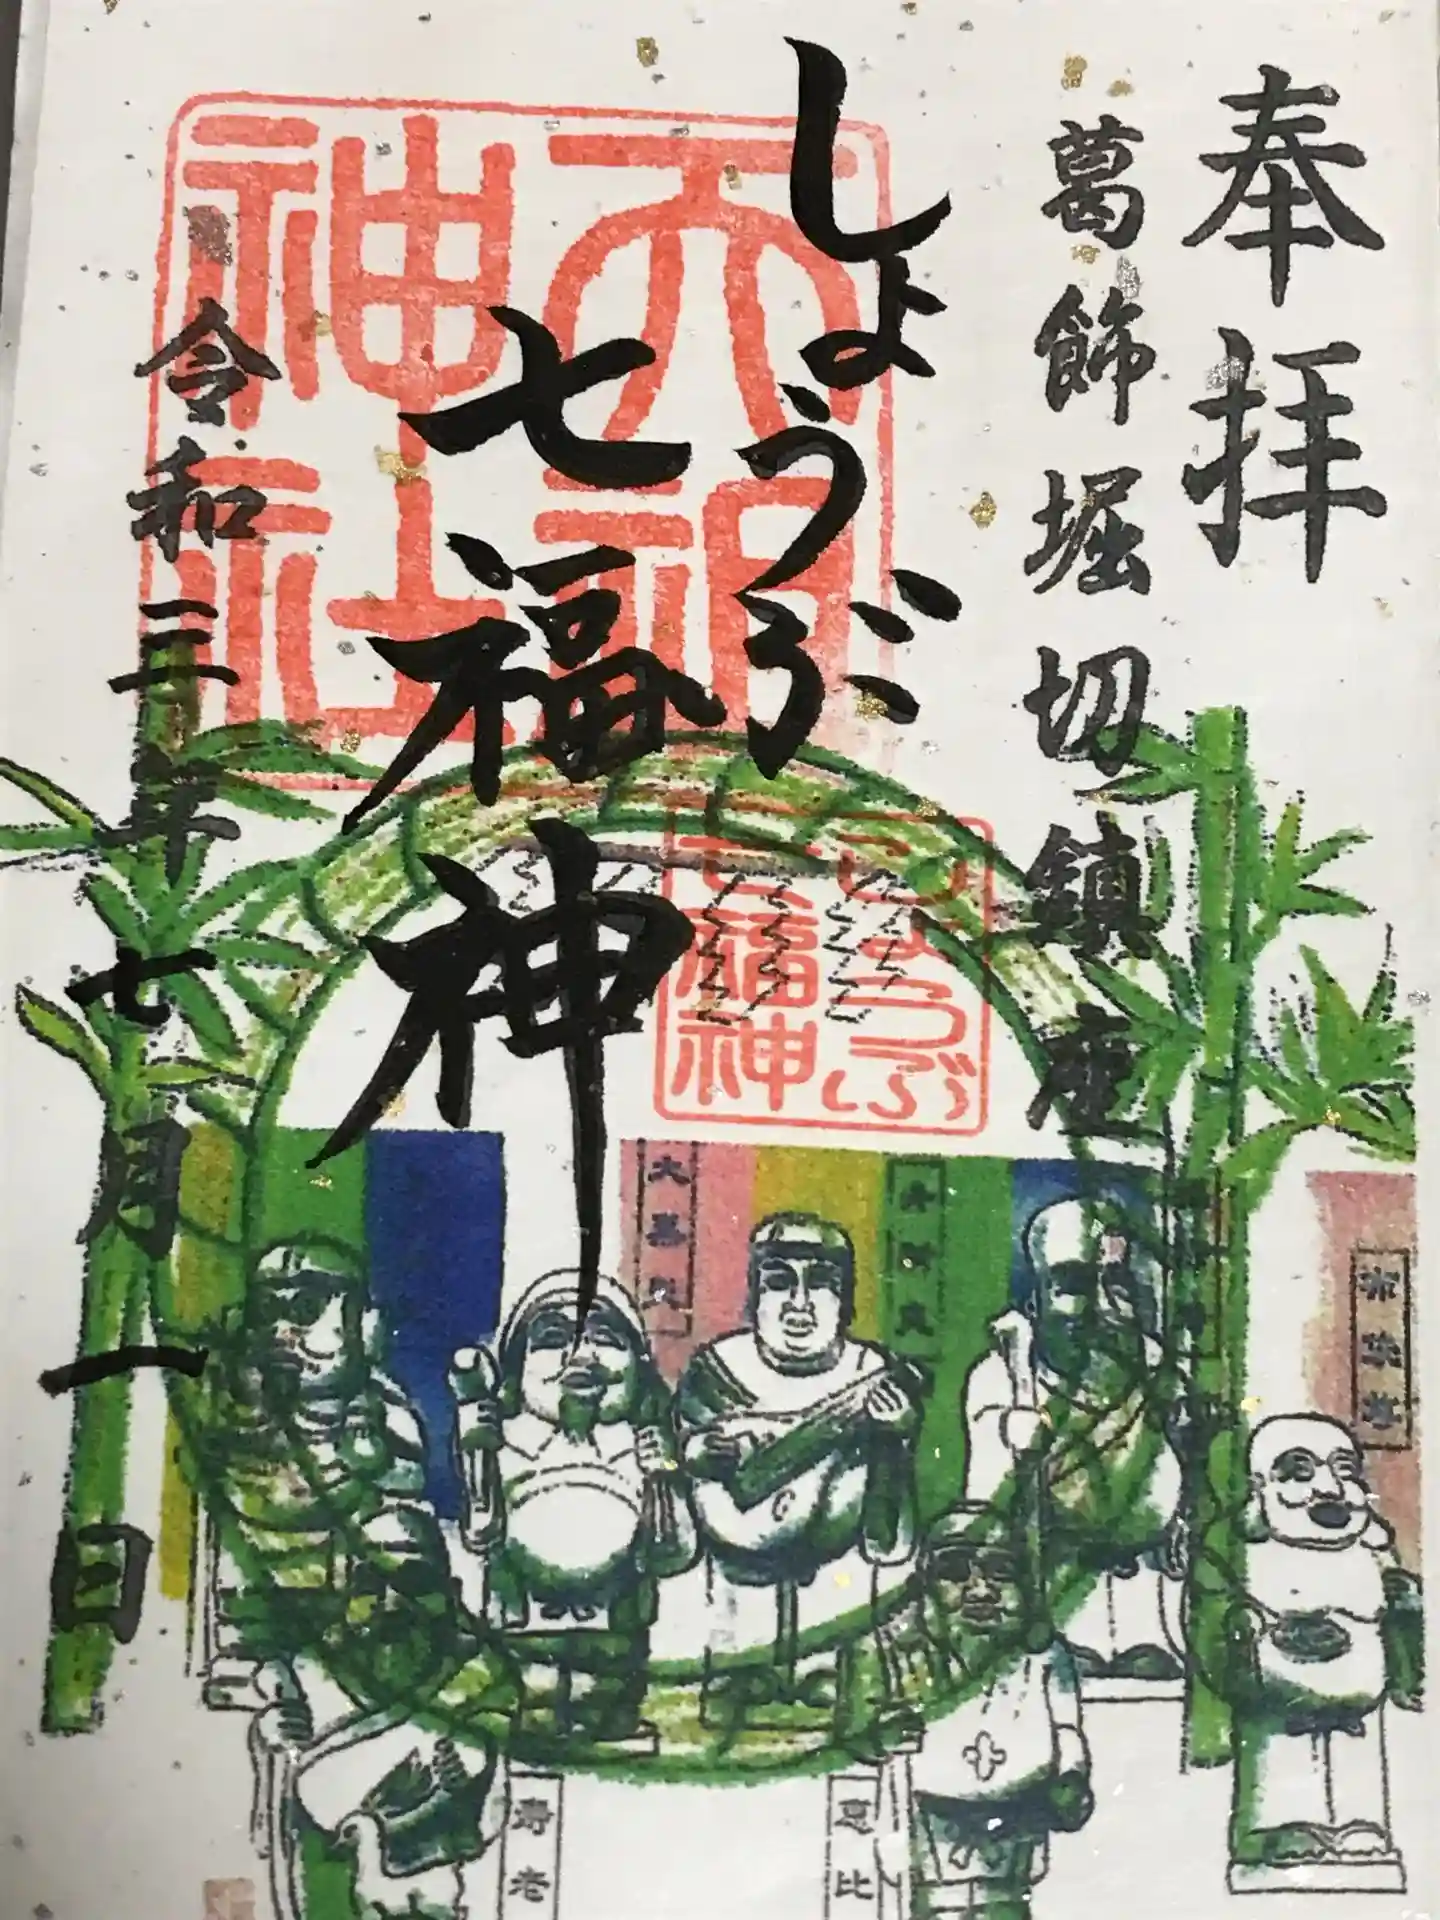 奉拝
葛飾堀切鎮座
しょうぶ
七福神
天祖
神社
しょうぶ
七福神
令和三年七月一日
大黒天
弁財天
寿老
恵比